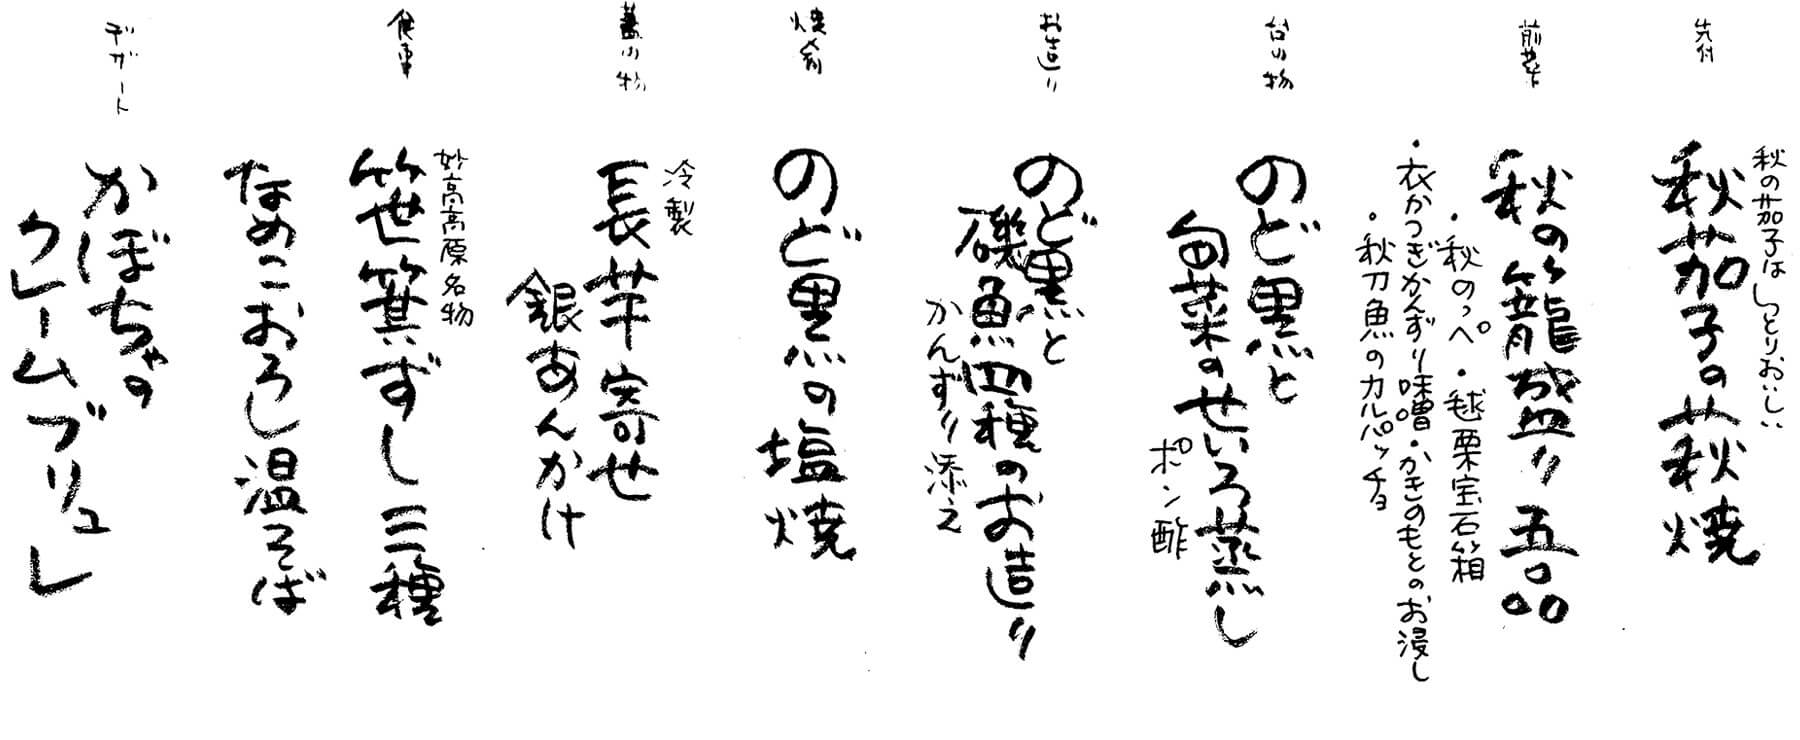 先付
秋の茄子はしっとりおいしい
秋茄子の萩焼
前菜
秋の籠盛り五品
・秋のっぺ・毬栗宝石箱
・衣かつぎかんずり味噌・かきのもとのお浸し
・秋刀魚のカルパッチョ
台の物
のど黒と
旬菜のせいろ蒸し
ポン酢
お造り
のど黒と
磯魚四種のお造り
かんずり添え
焼肴
のど黒の塩焼
蓋の物
冷製
長芋寄せ
銀あんかけ
食事
妙高高原名物
笹箕ずし三種
なめこおろし温そば
デザート
かぼちゃの
クレームブリュレ